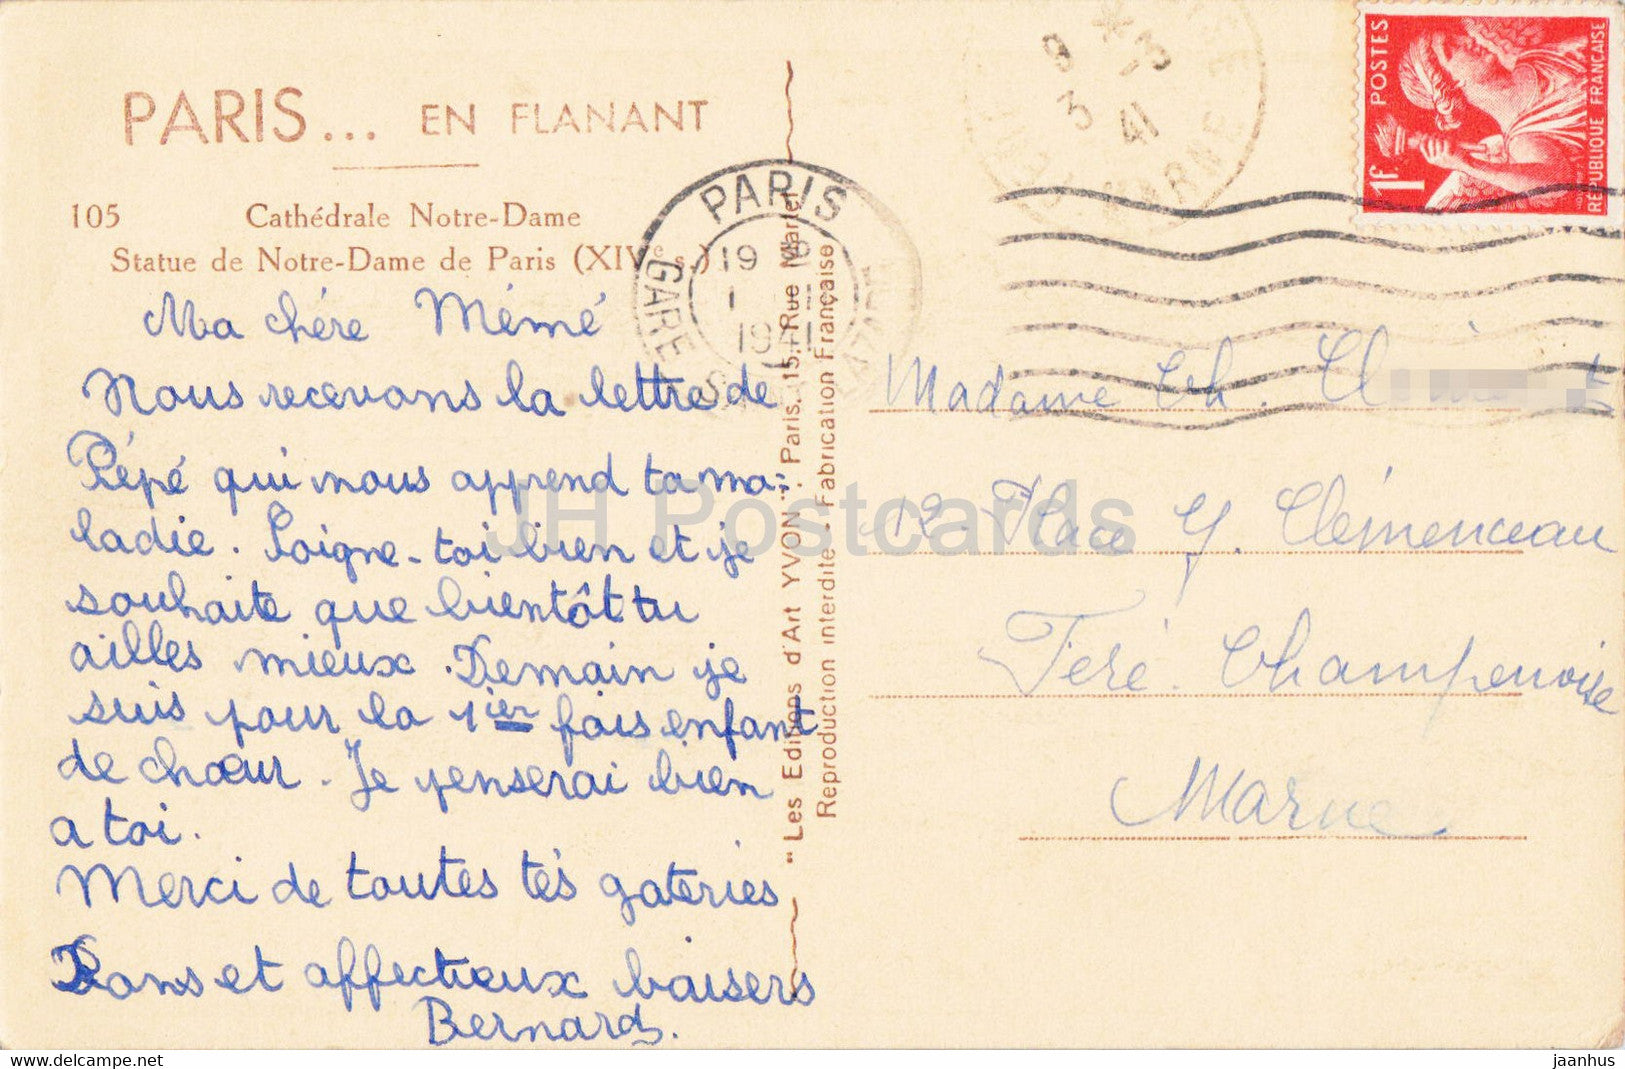 PARIS... EN FLANANT
105 Cathédrale Notre-Dame
Statue de Notre-Dame de Paris (XIVe s.)
Ma chére Mémé
Nous recevons la lettre de
Pépé qui nous apprend ta ma-
ladie. Soigne-toi bien et je
souhaite que bientôt tu
ailles mieux. Demain je
suis pour la 1ier fois enfant
de chœur. Je penserai bien
a toi.
Merci de toutes tes gateries
Bons et affectieux baisers
Bernard.
"Les Editions d'Art YVON". Paris. 15, Rue Martel
Reproduction interdite - Fabrication Française
PARIS
GARE
19 18
1941
3
41
MARNE
POSTES
1f.
REPUBLIQUE FRANÇAISE
Madame Ch. Cl
12 Place G. Clémenceau
Feré. Champenoise
Marne
JH Postcards
https://www.delcampe.net
jaanhus